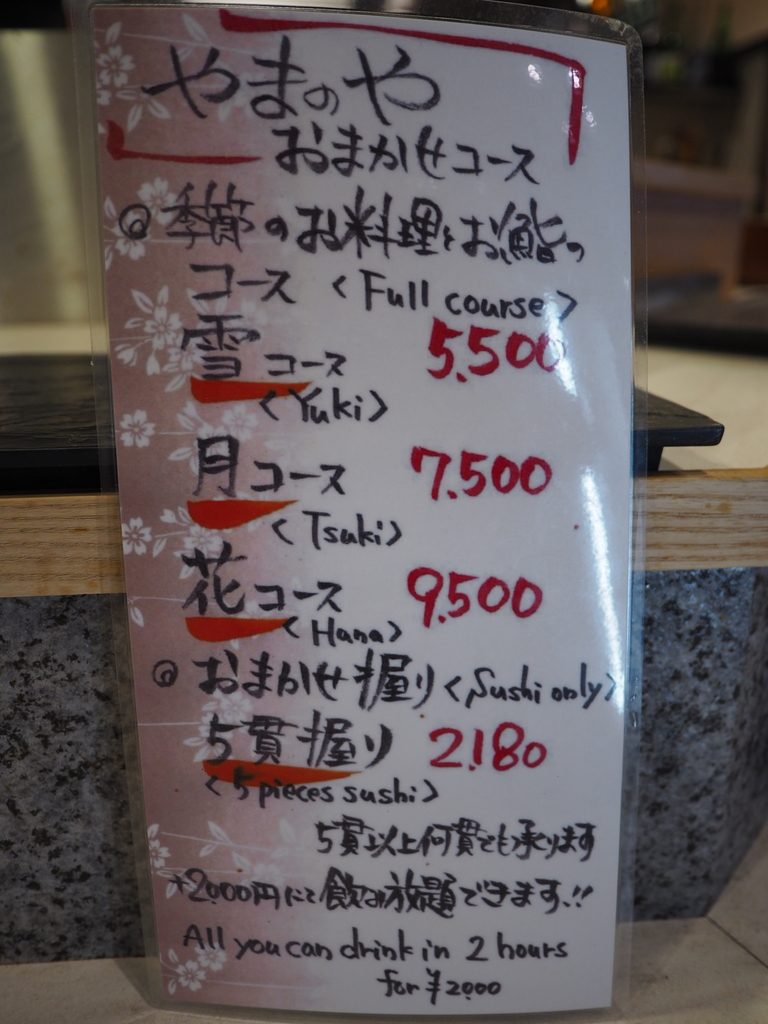 やまのや
おまかせコース
◎季節のお料理とお鮨の
コース <Full course>
雪コース 5.500
<Yuki>
月コース 7.500
<Tsuki>
花コース 9.500
<Hana>
◎おまかせ握り<Sushi only>
5貫握り 2.180
<5 pieces sushi>
5貫以上何貫でも承ります
+2000円にて飲み放題できます!!
All you can drink in 2 hours
for ¥2000